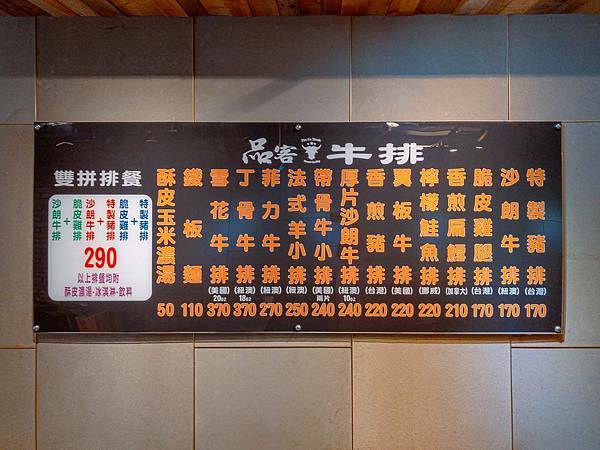 品客牛排
Pin Ke Steak
特製豬排 (台灣) 170
沙朗牛排 (紐澳) 170
脆皮雞腿排 (台灣) 170
香煎扁鱈排 (加拿大) 210
檸檬鮭魚排 (挪威) 220
翼板牛排 (美國) 220
香煎豬排 (台灣) 220
厚片沙朗牛排 (紐澳) 10oz 240
帶骨牛小排 (美國) 兩片 240
法式羊小排 (紐澳) 250
菲力牛排 (紐澳) 270
丁骨牛排 (紐澳) 18oz 370
雪花牛排 (美國) 20oz 370
鐵板麵 110
酥皮玉米濃湯 50
雙拼排餐
特製豬排+脆皮雞排
特製豬排+沙朗牛排
脆皮雞排+沙朗牛排
290
以上排餐均附
酥皮濃湯·冰淇淋·飲料